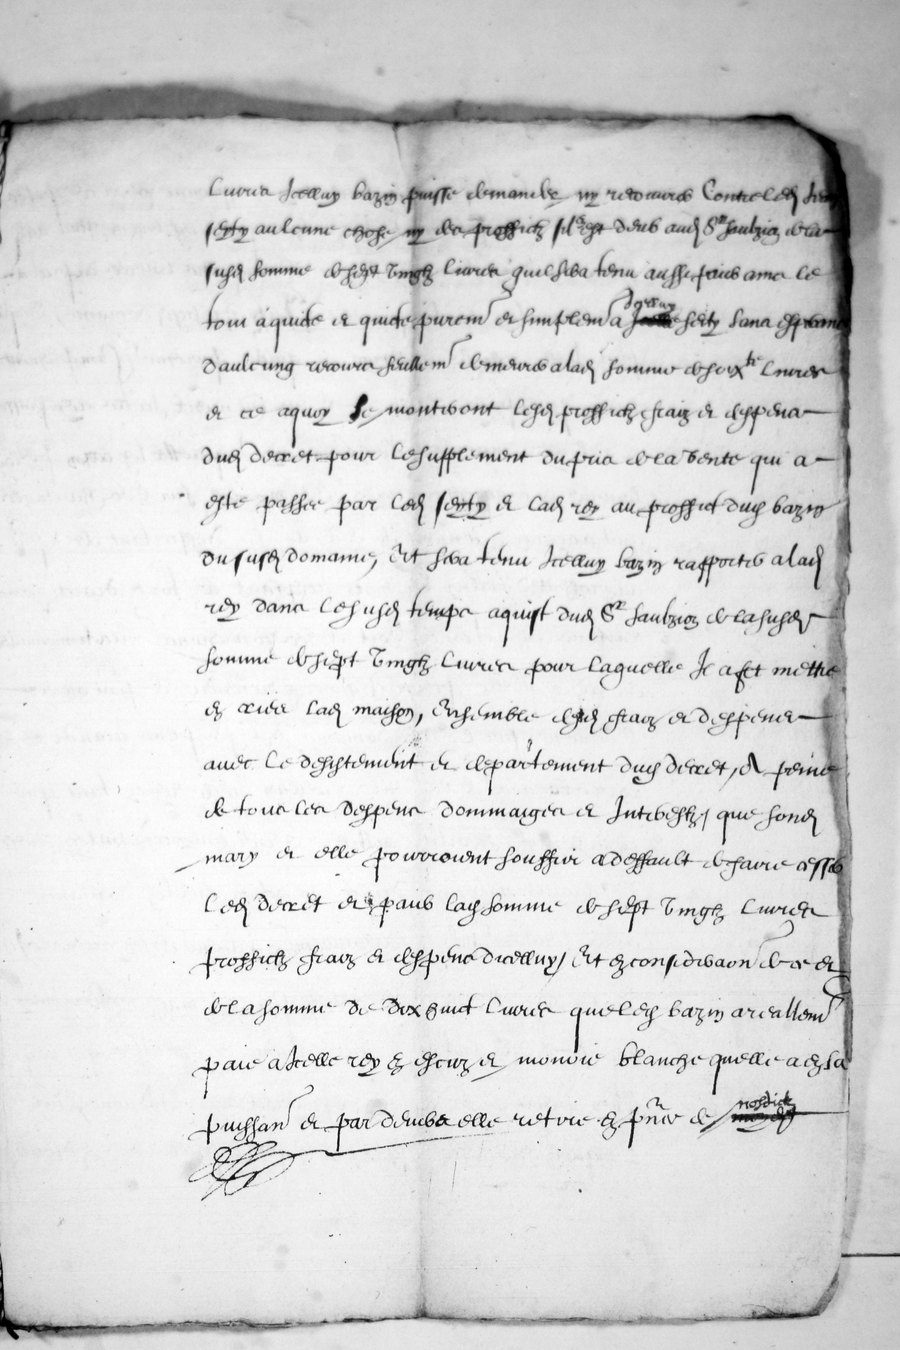 livres Icelluy bazin puisse demander ny recouvrer Contre led
serty aulcune chose ny des proffictz sil est deub aud Sr Saulzion de la
susd somme de sept vingtz livres quil sera tenu aussi paier ains le
tout aquicte et quicte puremt et simplemt a Icelluy serty sans esperance
daulcung recours seullemt demeurer a lad somme de soixte livres
et ce aquoy se monteront lesd proffictz fraiz et despens
dud decret pour le supplement du pris de la vente qui a
este passee par led serty et lad rey au proffict dud bazin
du susd domaine, Et sera tenu Icelluy bazin rapporter a lad
rey dans le susd temps aquist dud Sr Saulzion de la susd
somme de sept vingtz livres pour laquelle Il a fet mettre
en criees lad maison, Ensemble desd fraiz et despens
avec le desistement et departement dud decret, A peine
de tous les despens dommaiges et Interestz, que sond
mary et elle pourroient souffrir a deffault de faire cesser
led decret et paier lad somme de sept vingtz livres
proffictz fraiz et despens dicelluy, Et en consideraon de ce et
de la somme de dix huict livres que led bazin a reallemt
paie a Icelle rey en escuz et monoie blanche quelle a en sa
puissance et par devers elle retiree en pnce de nosdictz